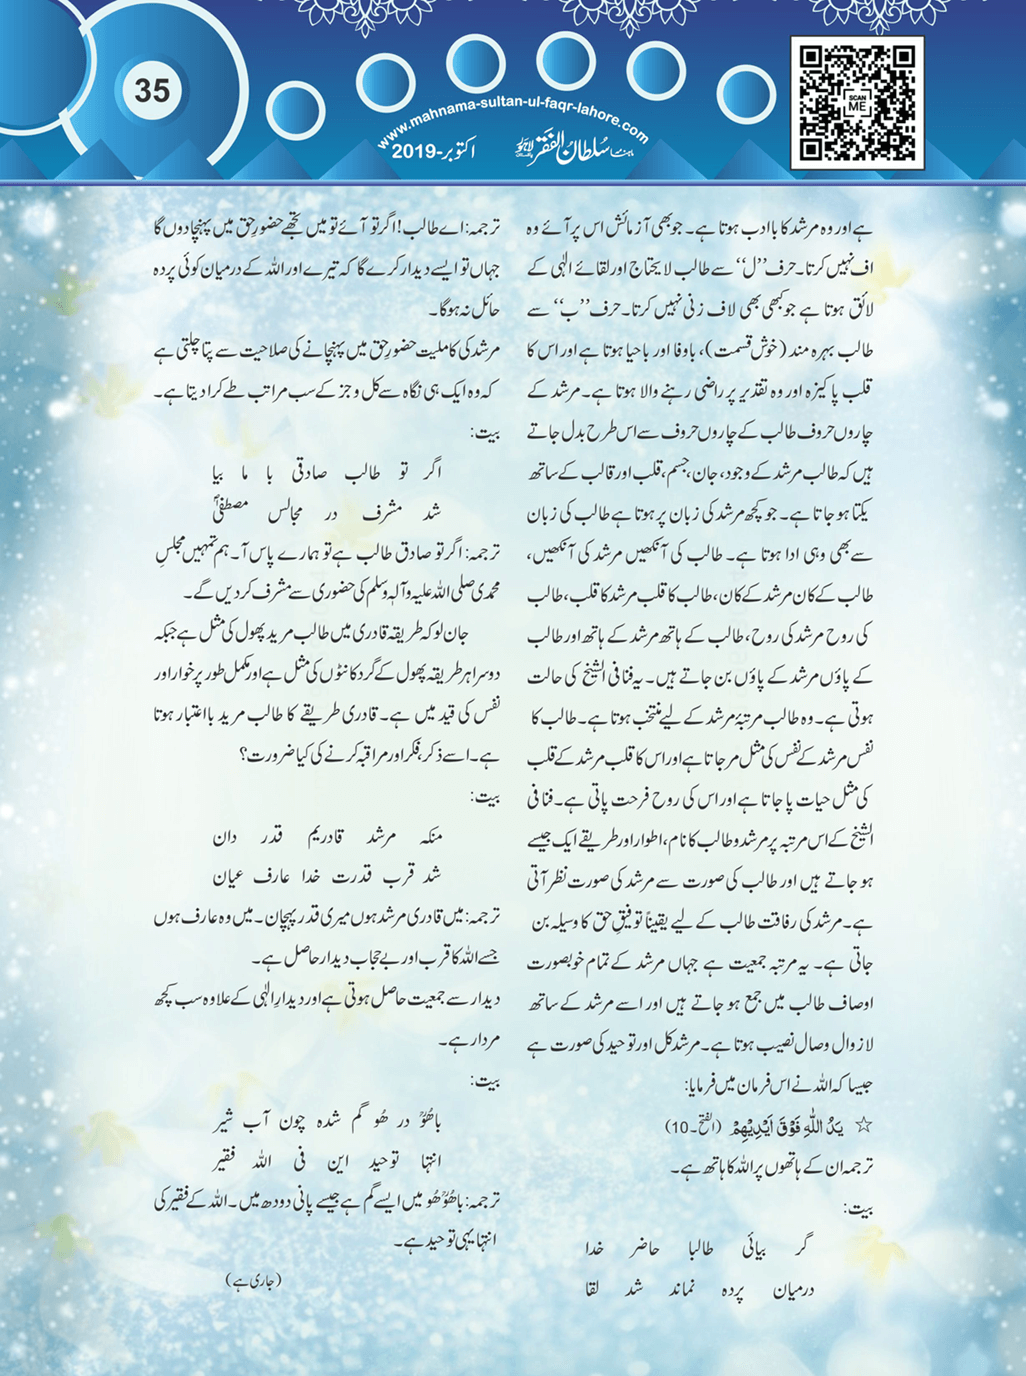 35
www.mahnama-sultan-ul-faqr-lahore.com
ماہنامہ سلطان الفقر لاہور
اکتوبر-2019
SCAN ME
ہے اور وہ مرشد کا باادب ہوتا ہے۔ جو بھی آزمائش اس پر آئے وہ
اف نہیں کرتا۔ حرف ”ل“ سے طالب لایحتاج اور لقائے الٰہی کے
لائق ہوتا ہے جو کبھی بھی لاف زنی نہیں کرتا۔ حرف ”ب“ سے
طالب بہرہ مند (خوش قسمت)، باوفا اور باحیا ہوتا ہے اور اس کا
قلب پاکیزہ اور وہ تقدیر پر راضی رہنے والا ہوتا ہے۔ مرشد کے
چاروں حروف طالب کے چاروں حروف سے اس طرح بدل جاتے
ہیں کہ طالب مرشد کے وجود، جان، جسم، قلب اور قالب کے ساتھ
یکتا ہو جاتا ہے۔ جو کچھ مرشد کی زبان پر ہوتا ہے طالب کی زبان
سے بھی وہی ادا ہوتا ہے۔ طالب کی آنکھیں مرشد کی آنکھیں،
طالب کے کان مرشد کے کان، طالب کا قلب مرشد کا قلب، طالب
کی روح مرشد کی روح، طالب کے ہاتھ مرشد کے ہاتھ اور طالب
کے پاؤں مرشد کے پاؤں بن جاتے ہیں۔ یہ فنا فی الشیخ کی حالت
ہوتی ہے۔ وہ طالب مرتبۂ مرشد کے لیے منتخب ہوتا ہے۔ طالب کا
نفس مرشد کے نفس کی مثل مر جاتا ہے اور اس کا قلب مرشد کے قلب
کی مثل حیات پا جاتا ہے اور اس کی روح فرحت پاتی ہے۔ فنا فی
الشیخ کے اس مرتبہ پر مرشد و طالب کا نام، اطوار اور طریقے ایک جیسے
ہو جاتے ہیں اور طالب کی صورت سے مرشد کی صورت نظر آتی
ہے۔ مرشد کی رفاقت طالب کے لیے یقیناً توفیقِ حق کا وسیلہ بن
جاتی ہے۔ یہ مرتبہ جمعیت ہے جہاں مرشد کے تمام خوبصورت
اوصاف طالب میں جمع ہو جاتے ہیں اور اسے مرشد کے ساتھ
لازوال وصال نصیب ہوتا ہے۔ مرشد کل اور توحید کی صورت ہے
جیسا کہ اللہ نے اس فرمان میں فرمایا:
☆ یَدُ اللّٰہِ فَوْقَ اَیْدِیْھِمْ (الفتح۔10)
ترجمہ ان کے ہاتھوں پر اللہ کا ہاتھ ہے۔
بیت:
گر بیائی طالبا حاضر خدا
درمیان پردہ نماند شد لقا
ترجمہ: اے طالب! اگر تو آئے تو میں تجھے حضورِ حق میں پہنچا دوں گا
جہاں تو ایسے دیدار کرے گا کہ تیرے اور اللہ کے درمیان کوئی پردہ
حائل نہ ہوگا۔
مرشد کی کاملیت حضورِ حق میں پہنچانے کی صلاحیت سے پتا چلتی ہے
کہ وہ ایک ہی نگاہ سے کل و جز کے سب مراتب طے کرا دیتا ہے۔
بیت:
اگر تو طالب صادقی با ما بیا
شد مشرف در مجالس مصطفیؐ
ترجمہ: اگر تو صادق طالب ہے تو ہمارے پاس آ۔ ہم تمہیں مجلسِ
محمدی صلی اللہ علیہ وآلہٖ وسلم کی حضوری سے مشرف کر دیں گے۔
جان لو کہ طریقہ قادری میں طالب مرید پھول کی مثل ہے جبکہ
دوسرا ہر طریقہ پھول کے گرد کانٹوں کی مثل ہے اور مکمل طور پر خوار اور
نفس کی قید میں ہے۔ قادری طریقے کا طالب مرید بااعتبار ہوتا
ہے۔ اسے ذکر، فکر اور مراقبہ کرنے کی کیا ضرورت؟
بیت:
منکہ مرشد قادریم قدر دان
شد قرب قدرت خدا عارف عیان
ترجمہ: میں قادری مرشد ہوں میری قدر پہچان۔ میں وہ عارف ہوں
جسے اللہ کا قرب اور بے حجاب دیدار حاصل ہے۔
دیدار سے جمعیت حاصل ہوتی ہے اور دیدارِ الٰہی کے علاوہ سب کچھ
مردار ہے۔
بیت:
باھُوؒ در ھُو گم شدہ چون آب شیر
انتہا توحید این فی اللہ فقیر
ترجمہ: باھُوؒ ھُو میں ایسے گم ہے جیسے پانی دودھ میں۔ اللہ کے فقیر کی
انتہا یہی توحید ہے۔
(جاری ہے)